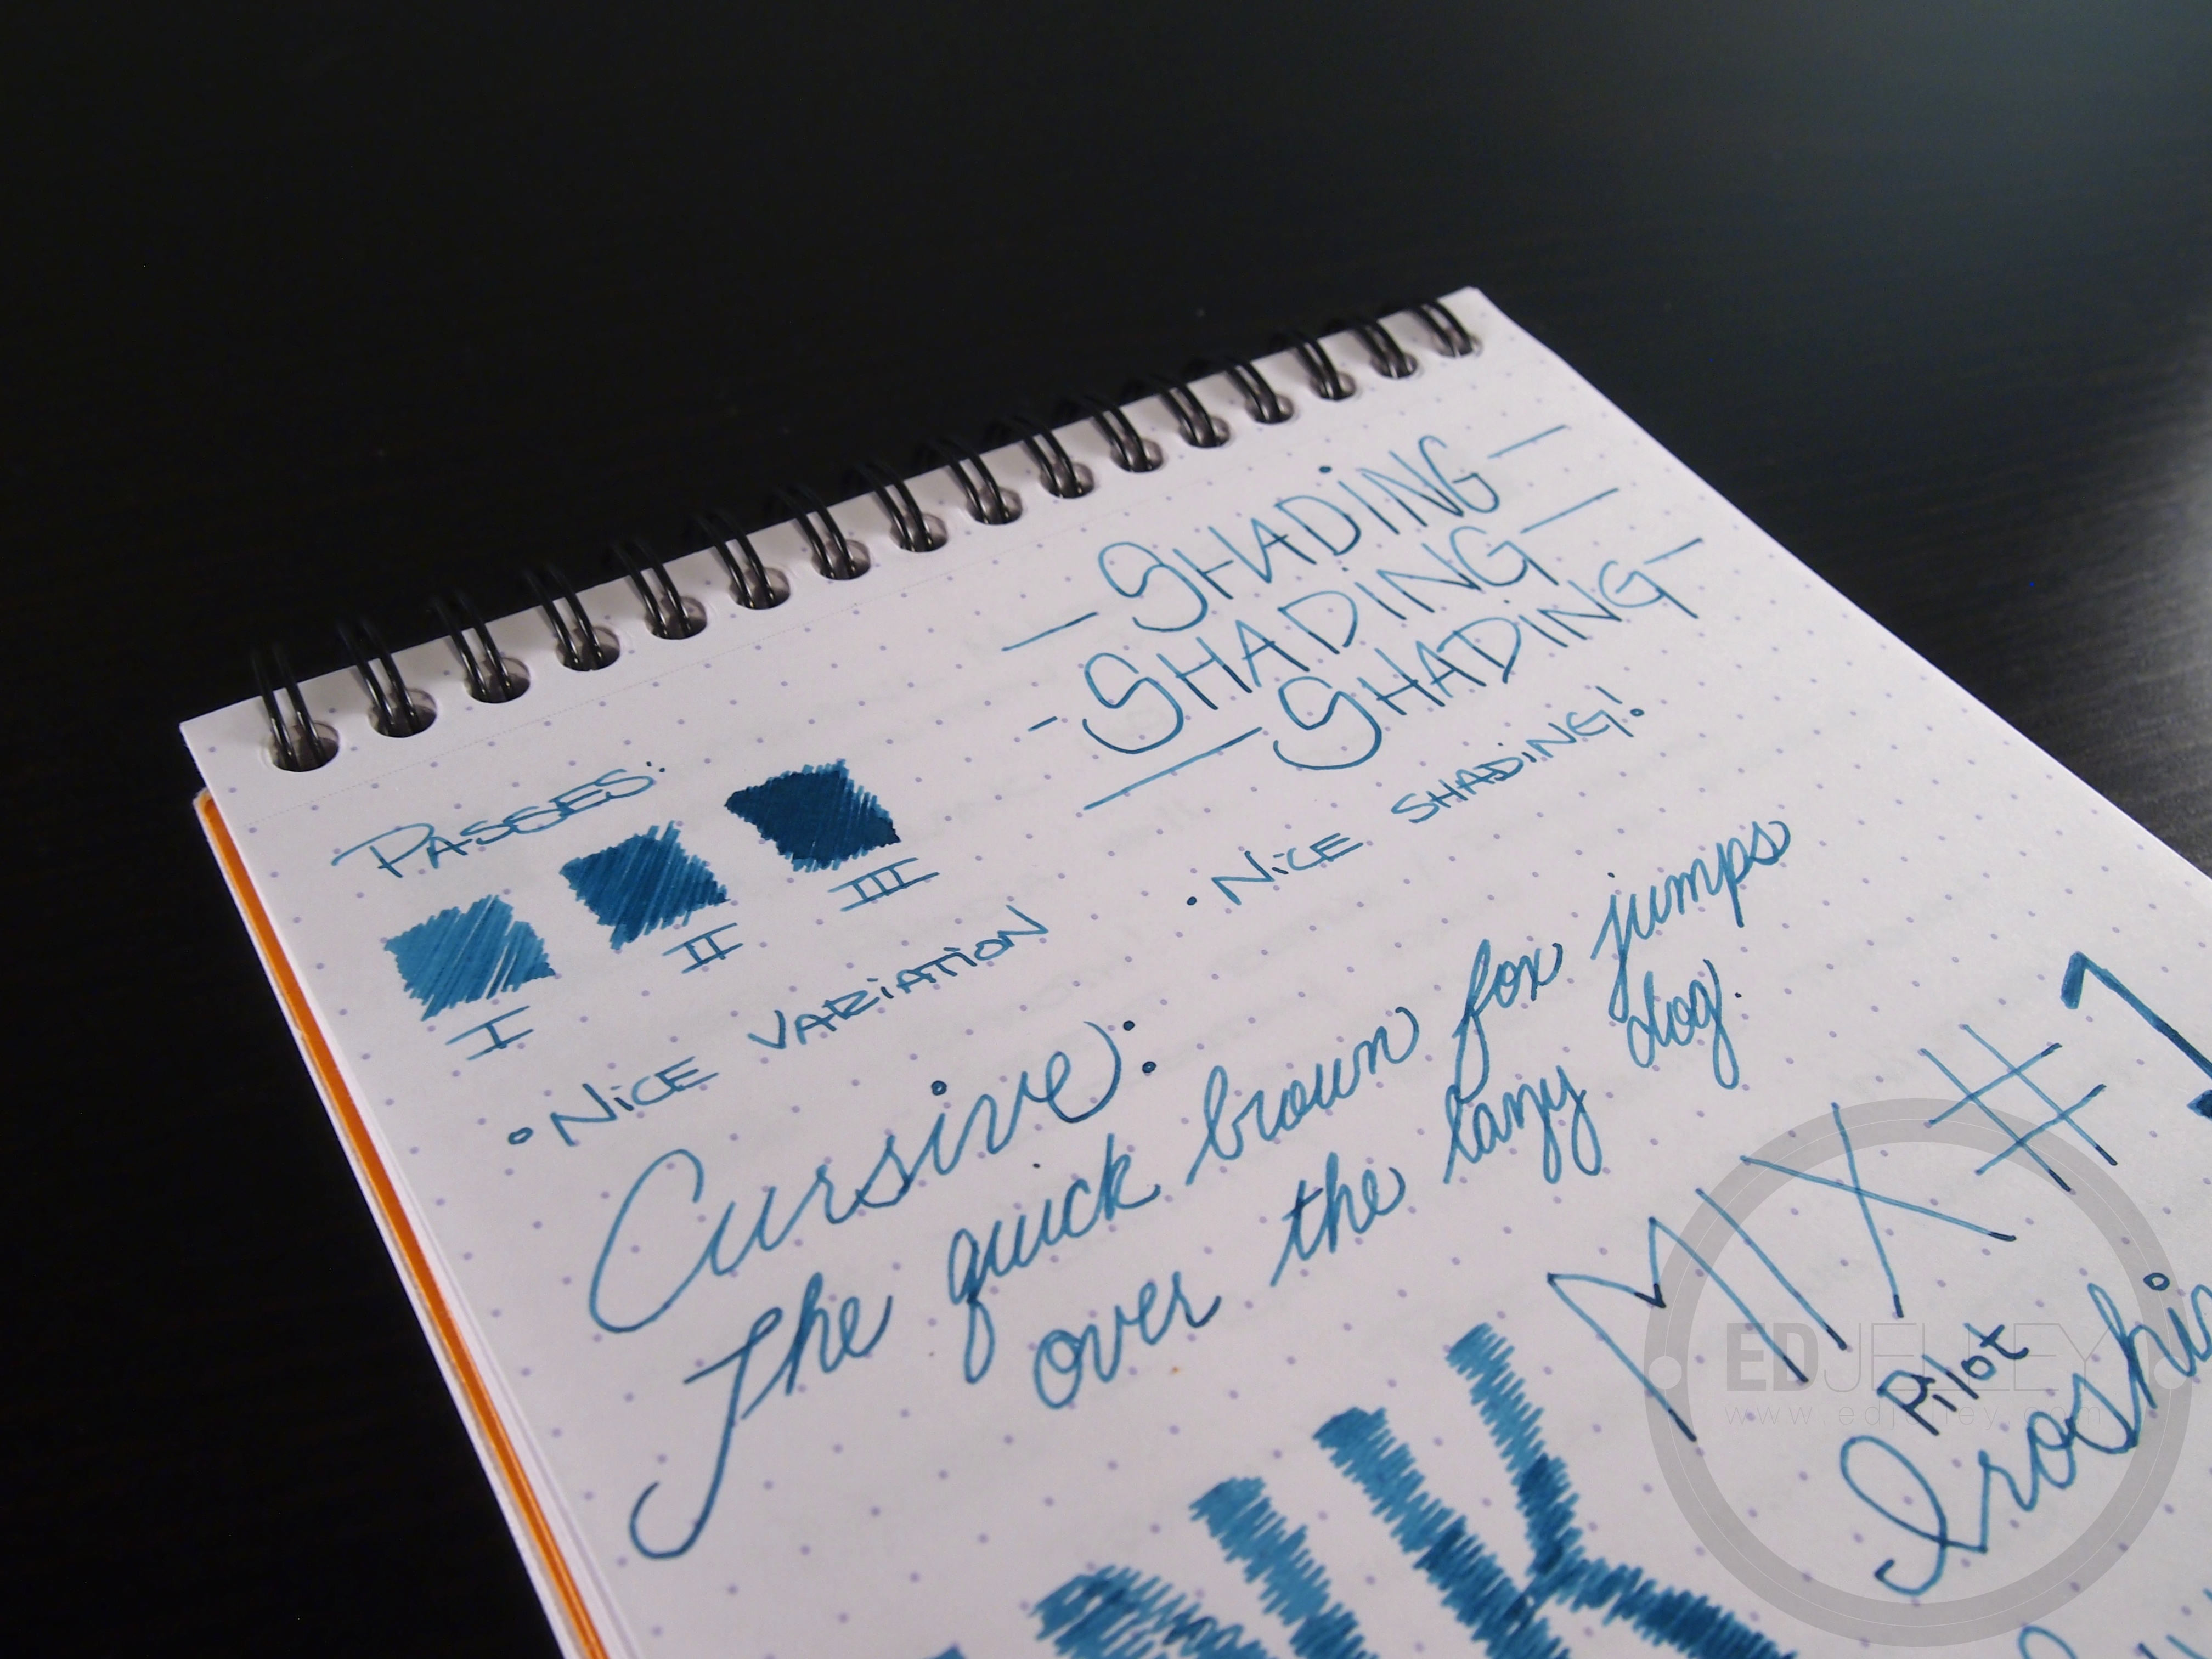 —SHADiNG—
-SHADiNG—
—SHADiNG—
PASSES:
I II III
• NiCE VARiATiON
• NiCE SHADiNG!
Cursive:
The quick brown fox jumps
over the lazy dog.
MIX #1
Pilot
EDJELLEY
www.edjelley.com